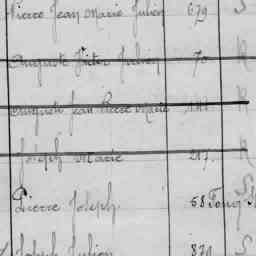 Pierre Jean Marie Julien 679 S
Auguste Victor Julien 70 R
Auguste Jean Pierre Marie R
Joseph Marie 217 R
Pierre Joseph 58 S
Joseph Julien 879 S